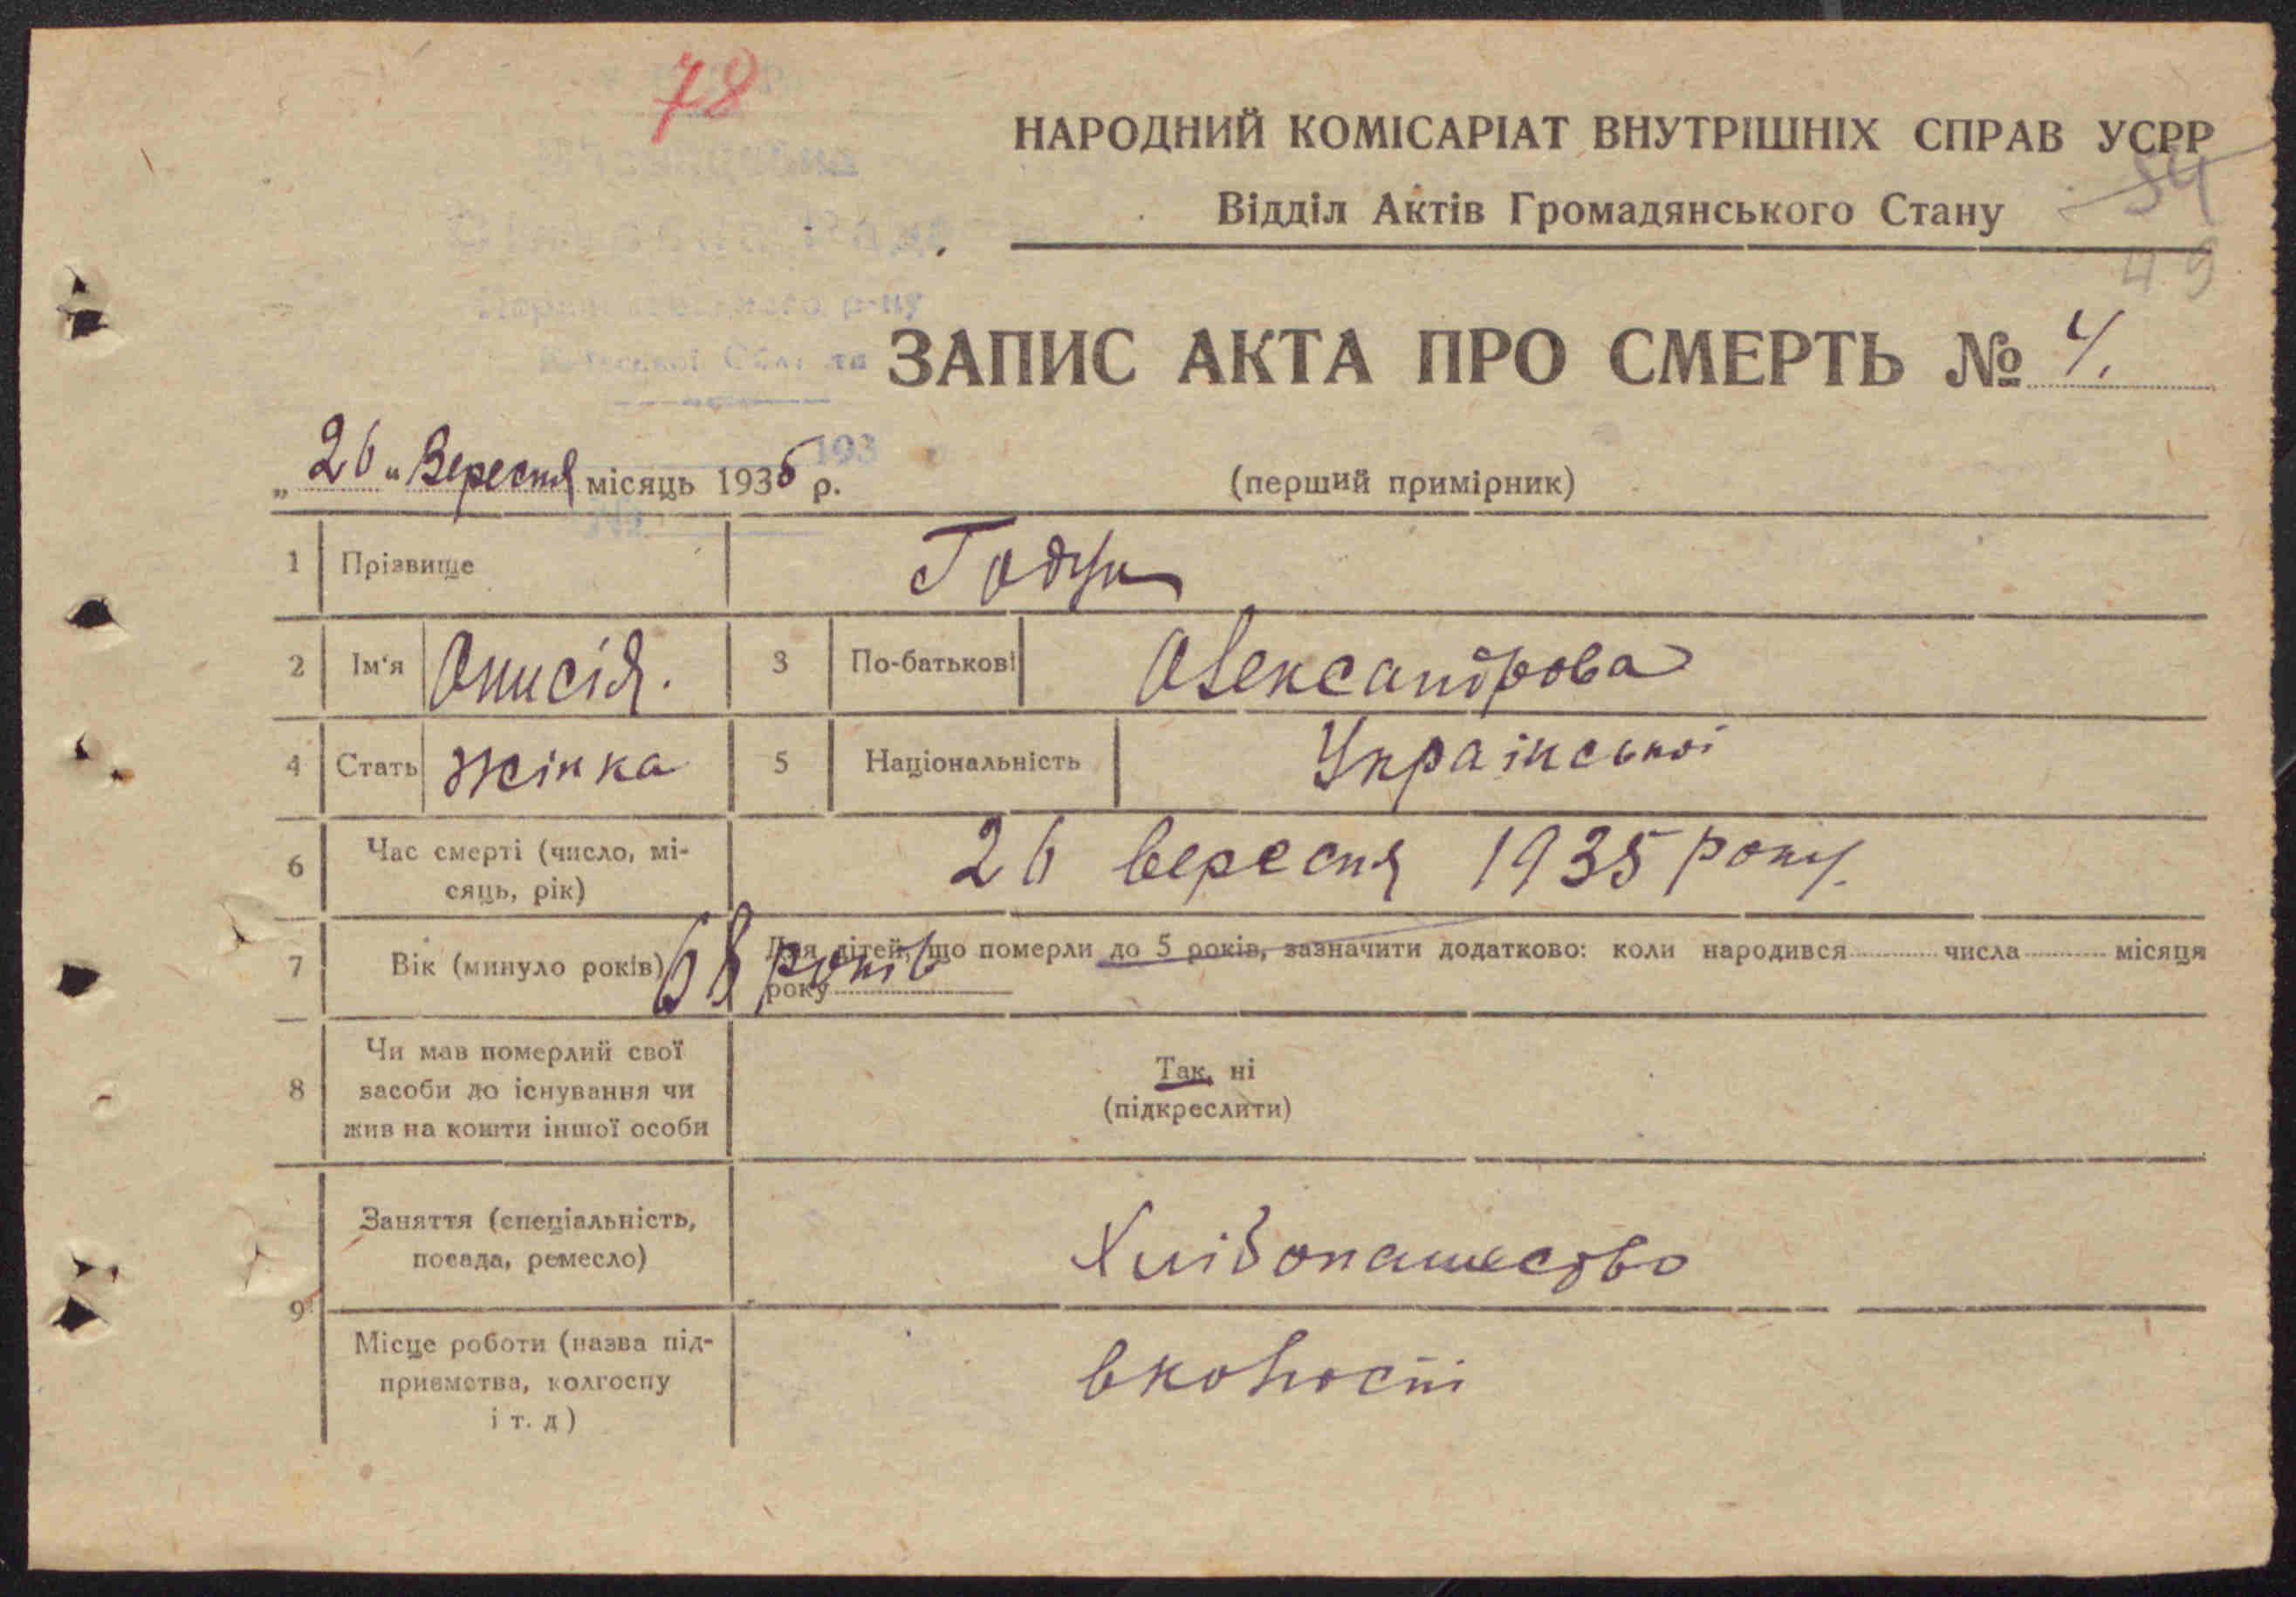 78
НАРОДНИЙ КОМІСАРІАТ ВНУТРІШНІХ СПРАВ УСРР
54
Відділ Актів Громадянського Стану
49
ЗАПИС АКТА ПРО СМЕРТЬ № 4.
„26" Вересня місяць 1935 р.
193
(перший примірник)
1 Прізвище
2 Ім'я Онисія. 3 По-батькові Олександрова
4 Стать жінка 5 Національність Українській
6 Час смерті (число, мі-
сяць, рік) 26 вересня 1935 року.
7 Вік (минуло років) 68 років Для дітей, що померли до 5 років, зазначити додатково: коли народився числа місяця
року
8 Чи мав померлий свої
засоби до існування чи
жив на кошти іншої особи
Так, ні
(підкреслити)
9 Заняття (спеціальність,
посада, ремесло) Хлібопашество
Місце роботи (назва під-
приємства, колгоспу
і т. д) вколгоспі